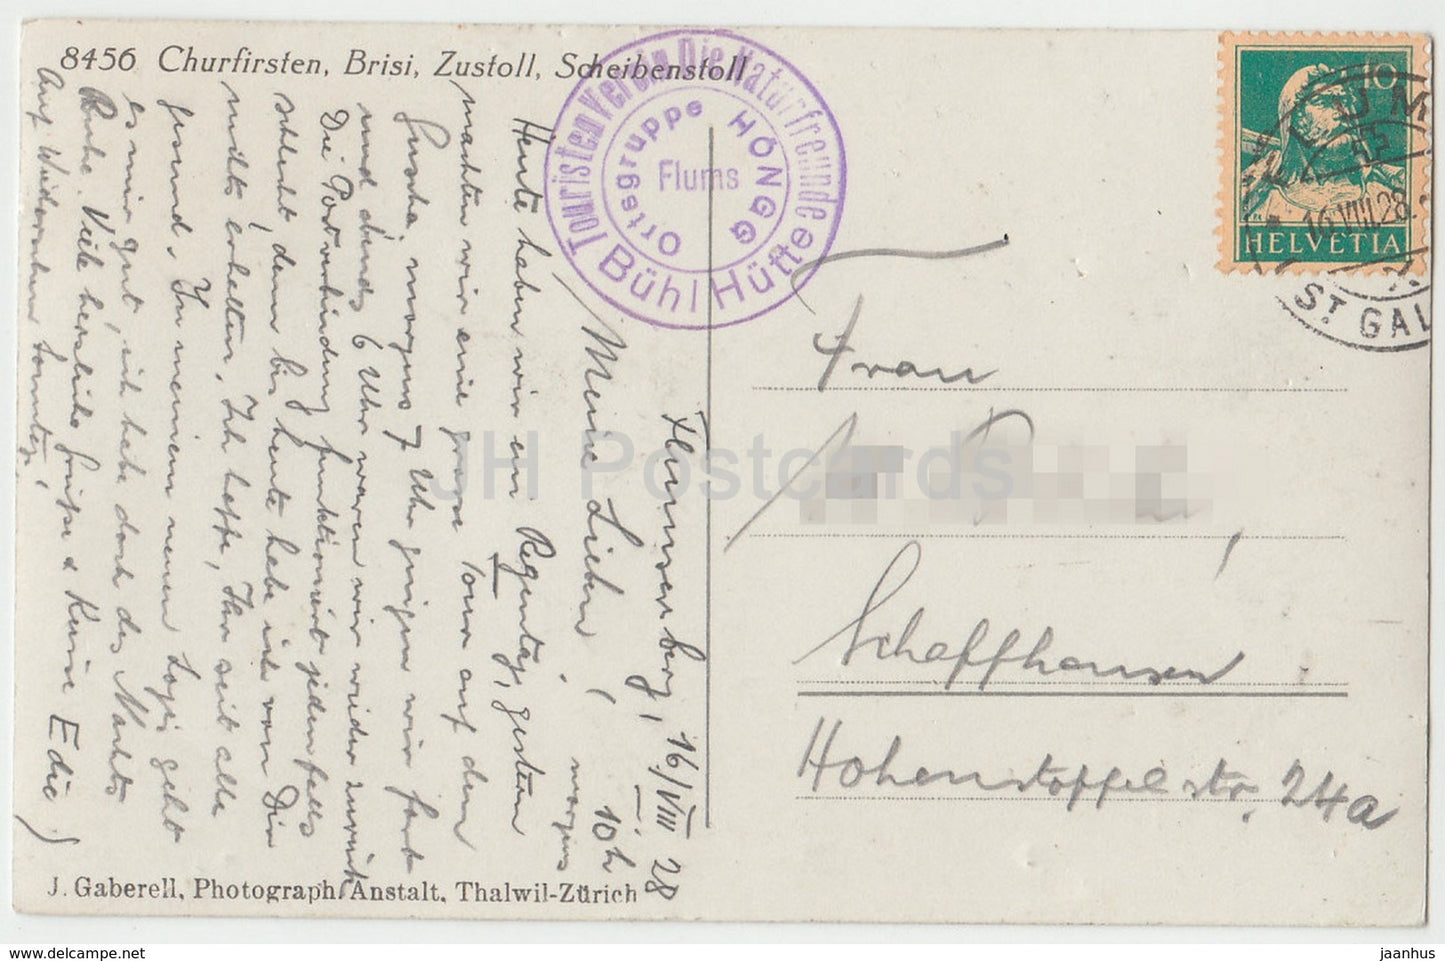 8456 Churfirsten, Brisi, Zustoll, Scheibenstoll
Touristen Verein Die Naturfreunde
Ortsgruppe HÖNGG
Flums
Bühl Hütte
10
HELVETIA
FLUMS
16.VIII.28.
ST. GAL
Flumserberg, 16/VIII 28
morgens 10 h
Meine Lieben!
Heute haben wir ein Regentag, gestern
machten wir eine grosse Tour auf dem
morgens 7 Uhr gingen wir fort
und abends 6 Uhr waren wir wieder zurück
Die Postverbindung funktioniert jedenfalls
schlecht, denn bis heute habe ich von Dir
nichts erhalten. Ich hoffe, Ihr seit alle
gesund. In meinem neuen Logis geht
es mir gut, ich habe doch des Nachts
Ruhe. Viele herzliche Grüsse & Küsse Edie
Auf Wiedersehen Sonntag!
Frau
Schaffhausen
Hohenstoffelstr. 24a
J. Gaberell, Photograph. Anstalt, Thalwil-Zürich
JH Postcards
www.delcampe.net
jaanhus